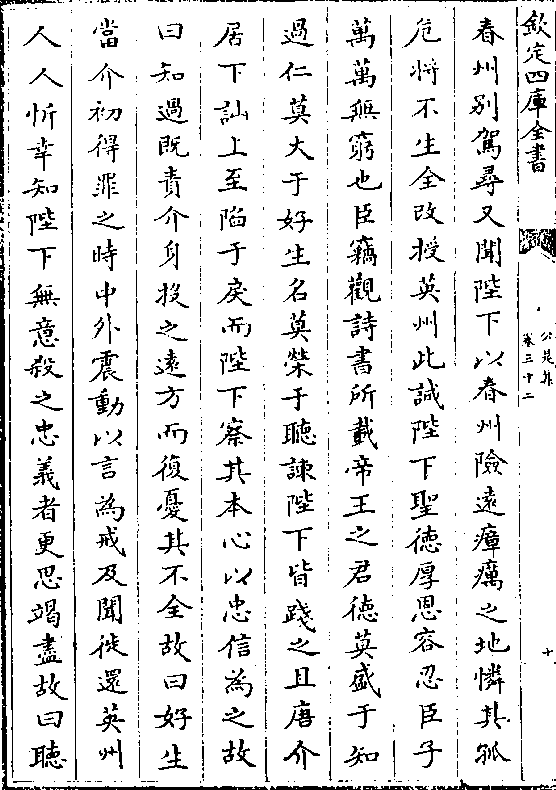 欽定四庫全書
公是集
卷三十二
十
春州别駕尋又聞陛下以春州險遠瘴癘之地憐其孤
危將不生全改授英州此誠陛下聖徳厚恩容忍臣子
萬萬無窮也臣竊觀詩書所載帝王之君徳莫盛于知
過仁莫大于好生名莫榮于聽諫陛下皆踐之且唐介
居下訕上至陷于戾而陛下察其本心以忠信為之故
曰知過既責介身投之遠方而復憂其不全故曰好生
當介初得罪之時中外震動以言為戒及聞徙還英州
人人忻幸知陛下無意殺之忠義者更思竭盡故曰聽